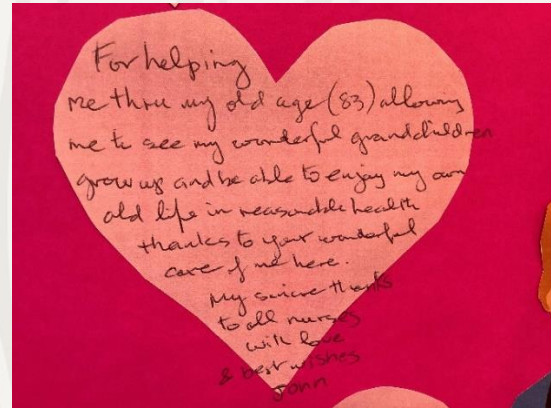 For helping
me thru my old age (83) allowing
me to see my wonderful grandchildren
grow up and be able to enjoy my own
old life in reasonable health
thanks to your wonderful
care of me here.
My sincere thanks
to all nurses
with love
& best wishes
John